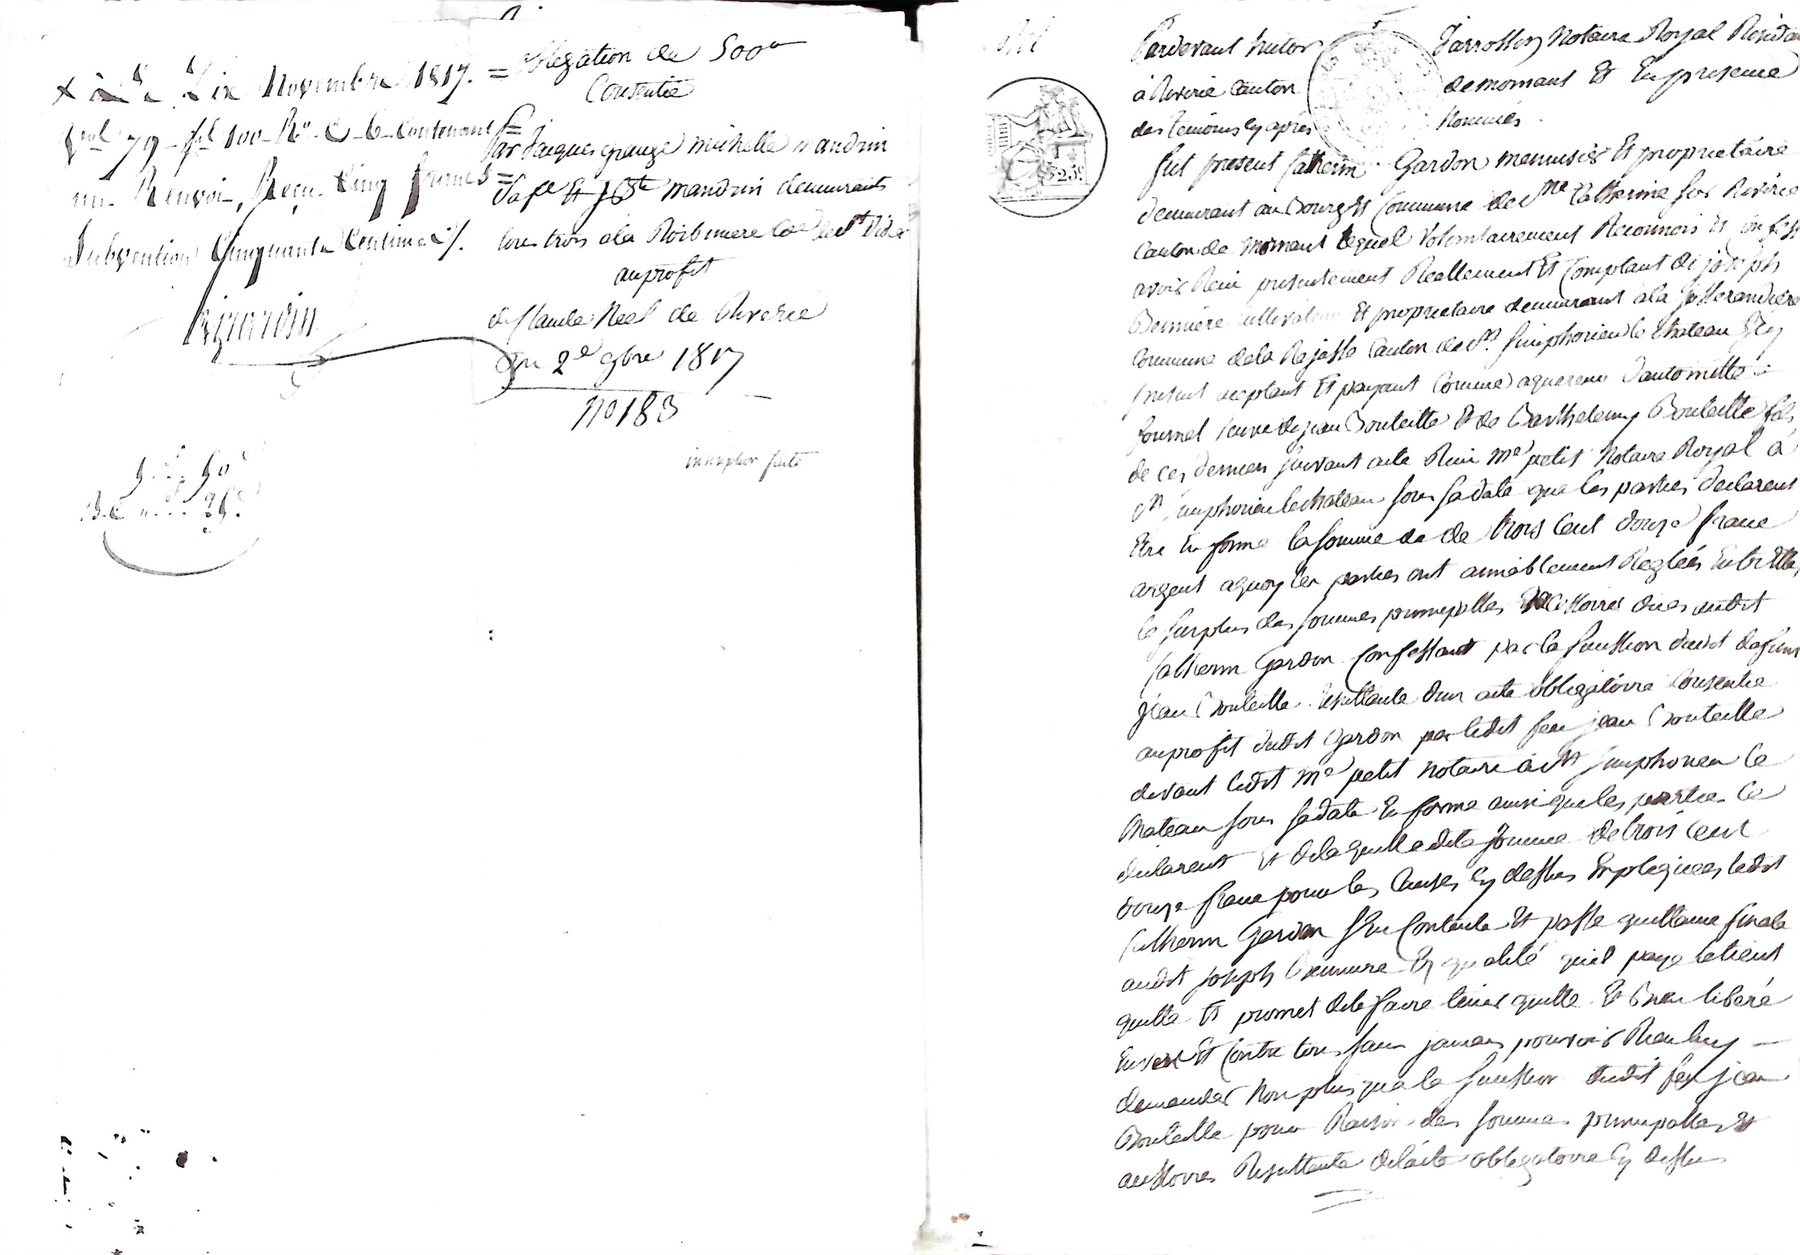 Novembre 1817.
fol 100 Ro C 6 Contenant
un Renvoi, Reçu Cinq francs
Subvention Cinquante Centimes
obligation de 500
Consentie
Par Jacques grange michelle mandrin
Sa fe Et mandrin demeurants
tous trois a la
au profit
de Claude Neel de Riverie
Du 2e 9bre 1817
No 183
inscription faite
5 50
25
Pardevant Victor Jarrosson Notaire Royal Résidant
a Riverie Canton de mornant Et En presence
des temoins Cy apres Nommés
fut present Catherin Gardon menuisier Et proprietaire
demeurant au Bourg Et Commune de Ste Catherine sur Riverie
Canton de mornant lequel volontairement Reconnoit Et Confesse
avoir Recu presentement Reellement Et Comptant de joseph
cultivateur Et proprietaire demeurant a la
Commune de la Rajasse Canton de St Simphorien le Chateau Icy
present acceptant Et payant Comme aquereur d'antoinette
fournel veuve de jean Bouteille Et de Barthelemy Bouteille fils
de ces derniers suivant acte Recu Me petit Notaire Royal à
St simphorien le chateau sous sa date que les parties declarent
Etre En forme la somme de de trois Cent douze franc
argent aquoy les parties ont amiablement Reglées Entre Elles
le surplus des sommes principalles Et accessoires dues audit
Catherin Gardon Confessant par la succession dudit defunt
jean Bouteille Resultante d'un acte obligatoire Consentie
au profit dudit Gardon par ledit feu jean Bouteille
devant ledit Me petit Notaire à St simphorien le
Chateau sous sa date En forme ainsi que les parties le
declarent Et de laquelle dite somme de trois Cent
douze franc pour les Causes Cy dessus Expliquées ledit
Catherin Gardon s'En Contente Et passe quittance finale
audit joseph En qualité qu'il paye le tient
quitte Et promet de le faire tenir quitte Et Bien libéré
Envers Et Contre tous sans jamais pouvoir Rien luy
demander Non plus qu'a la succession dudit feu jean
Bouteille pour Raison des sommes principalles Et
accessoires Resultante de l'acte obligatoire Cy dessus